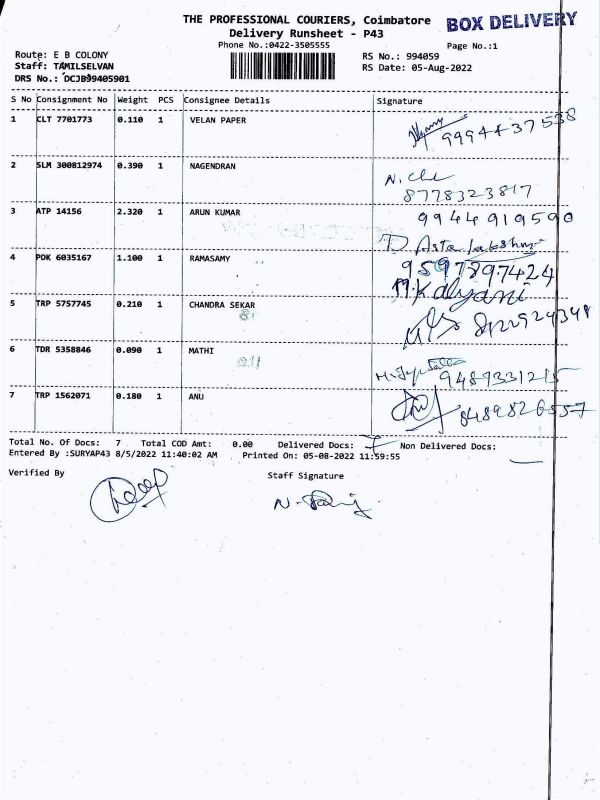 THE PROFESSIONAL COURIERS, Coimbatore
BOX DELIVERY
Delivery Runsheet - P43
Phone No.:0422-3505555
Page No.:1
Route: E B COLONY
RS No.: 994059
Staff: TAMILSELVAN
RS Date: 05-Aug-2022
DRS No.: DCJB99405901
S No Consignment No Weight PCS Consignee Details Signature
1 CLT 7701773 0.110 1 VELAN PAPER
9994437538
2 SLM 300812974 0.390 1 NAGENDRAN
8778323817
3 ATP 14156 2.320 1 ARUN KUMAR 9944919590
4 PDK 6035167 1.100 1 RAMASAMY 9597897424
M.Kalyani
5 TRP 5757745 0.210 1 CHANDRA SEKAR
6 TDR 5358846 0.090 1 MATHI
9489331215
7 TRP 1562071 0.180 1 ANU
8489826557
Total No. Of Docs: 7 Total COD Amt: 0.00 Delivered Docs: 7 Non Delivered Docs:
Entered By :SURYAP43 8/5/2022 11:40:02 AM Printed On: 05-08-2022 11:59:55
Verified By
Staff Signature